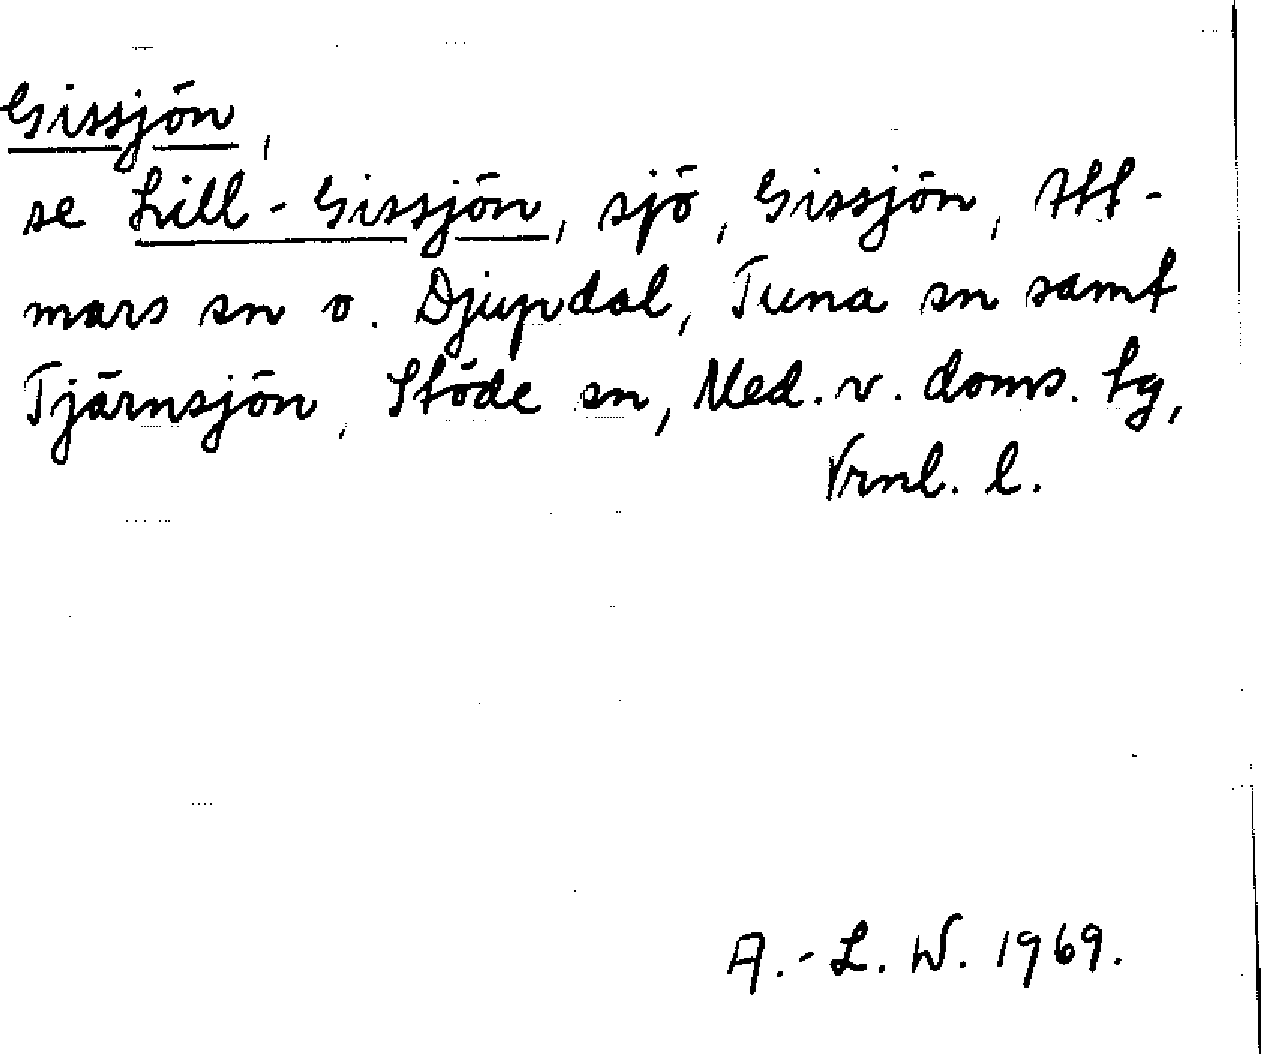 Gissjön,
se Lill-Gissjön, sjö, Gissjön, Att-
mars sn o. Djupdal, Tuna sn samt
Tjärnsjön, Stöde sn, Med. v. doms. tg,
Vrnl. l.
A.-L. W. 1969.